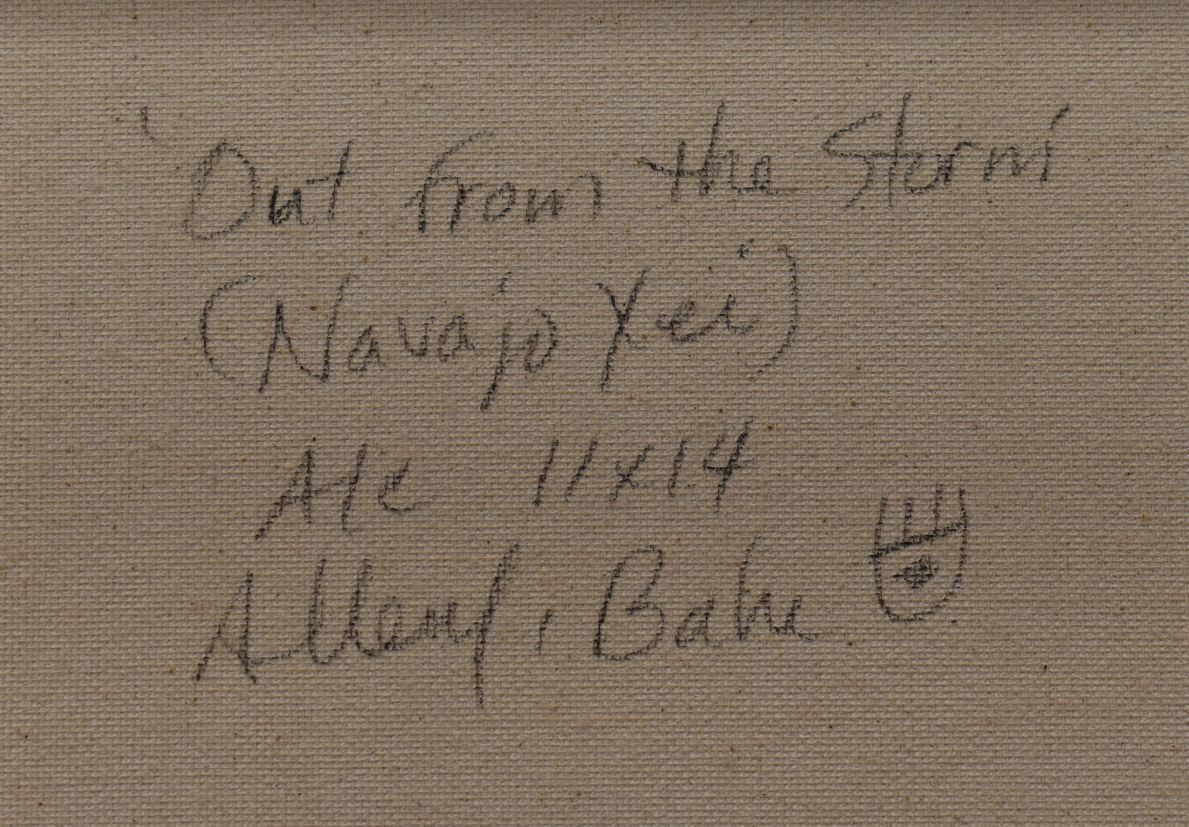 'Out from the Storm'
(Navajo Yei)
A/c 11x14
Allen, Bahe